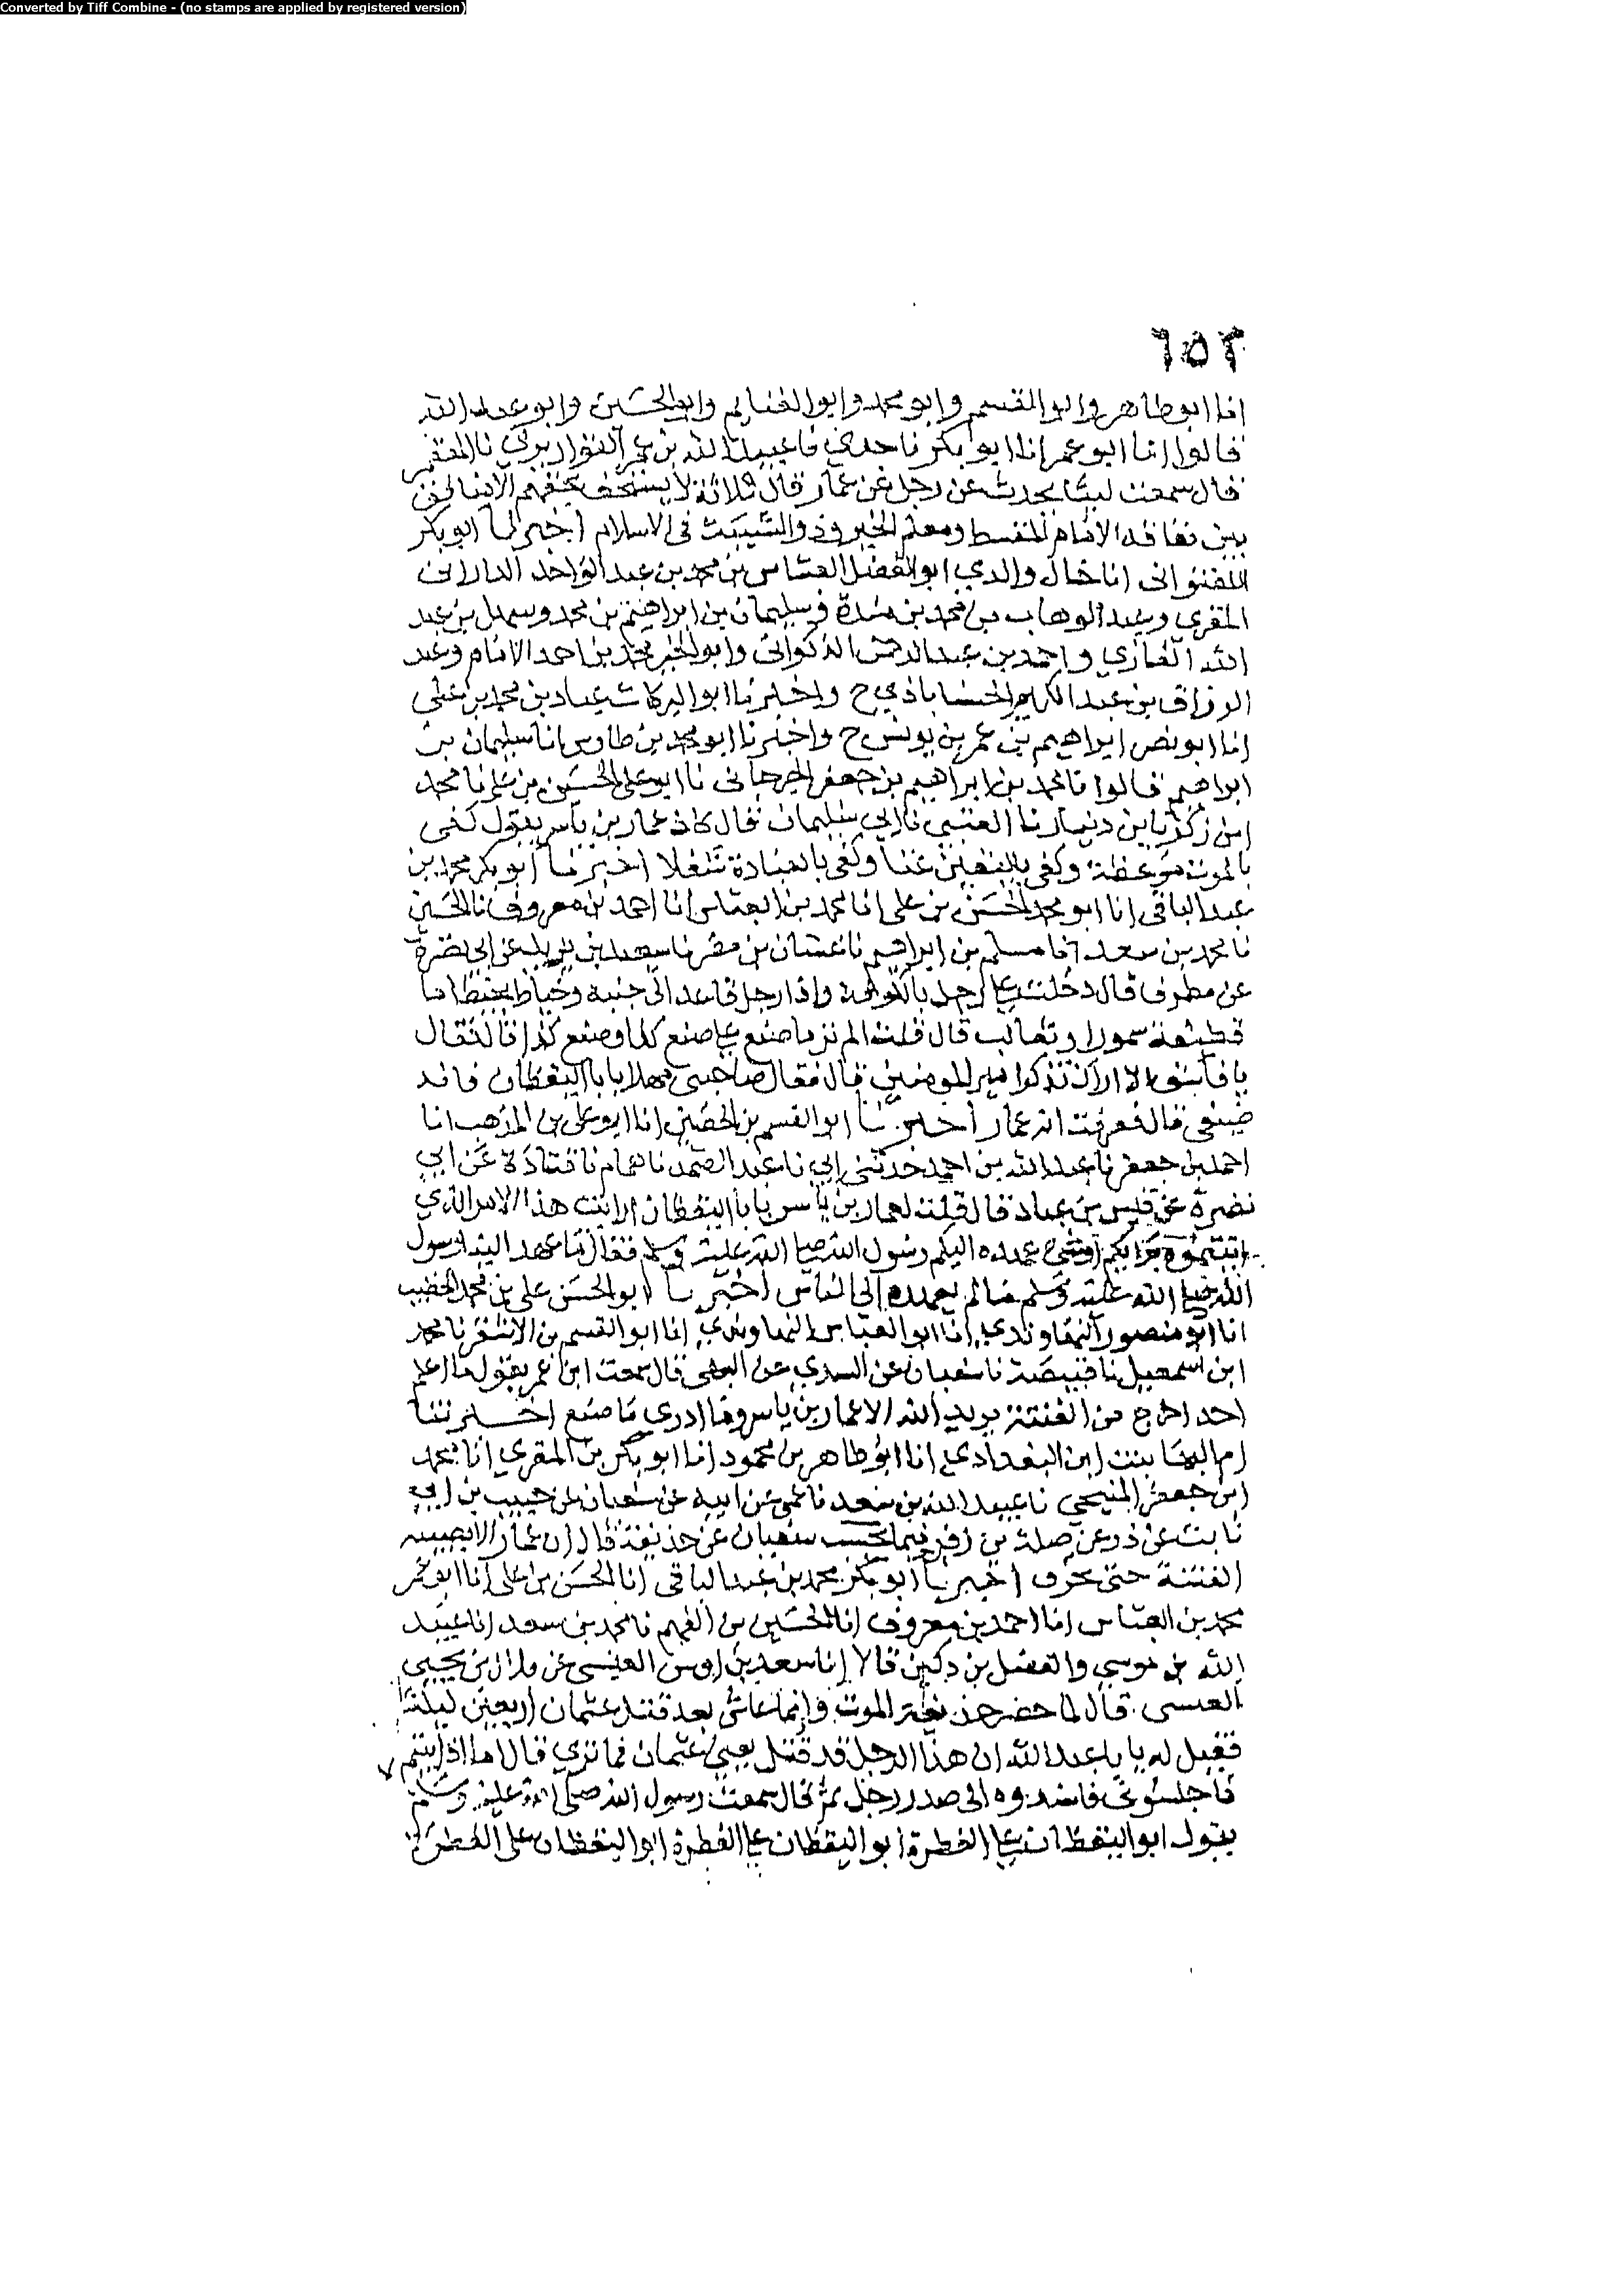 Converted by Tiff Combine - (no stamps are applied by registered version)
٦٥٣
انا ابو طاهر وابو القسم وابو محمد وابو الغنايم وابو الحسين وابو عبد الله
قالوا انا ابو عمر انا ابو بكر نا جدي نا عبيد الله بن عمر القواريري نا المعتمر
قال سمعت ليثا يحدث عن رجل عن عمار قال ثلاثة لا يستخف بحقهم الا منافق
بين نفاقه الامام المقسط ومعلم الخير وذو الشيبة في الاسلام اخبرنا ابو بكر
اللفتواني انا خال والدي ابو الفضل العباس بن محمد بن عبد الواحد الداراني
المقري وعبد الوهاب بن محمد بن مندة وسليمان بن ابراهيم بن محمد وسهل بن عبد
الله الغازي واحمد بن عبد الرحمن الذكواني وابو الخير محمد بن احمد الامام وعبد
الرزاق بن عبد الكريم الحسناباذي ح واخبرنا ابو البركات عباد بن محمد بن علي
انا ابو نصر ابراهيم بن عمر بن يونس ح واخبرنا ابو محمد بن طاوس انا سليمان بن
ابراهيم قالوا نا محمد بن ابراهيم بن جعفر الجرجاني نا ابو علي الحسين بن علي نا محمد
ابن زكريا بن دينار نا العتبي نا ابي سليمان قال كان عمار بن ياسر يقول كفى
بالموت موعظة وكفى باليقين غنا وكفى بالعبادة شغلا اخبرنا ابو بكر محمد بن
عبد الباقي انا ابو محمد الحسن بن علي انا محمد بن العباس انا احمد بن معروف نا الحسين
نا محمد بن سعد انا مسلم بن ابراهيم نا غسان بن مضر نا سعيد بن يزيد عن ابي نضرة
عن مطرف قال دخلت على رجل بالكوفة واذا رجل قاعد الى جنبه وخياط يخيط اما
قطيفة سمور او ثعالب قال قلت الم تر ما صنع علي صنع كذا وصنع كذا قال فقال
يا فاسق الا اراك تذكر امير المومنين قال فقال صاحبي مهلا يا با اليقظان فانه
ضيفي قال فعرفت انه عمار اخبرنا ابو القسم بن الحصين انا ابو علي بن المذهب انا
احمد بن جعفر نا عبد الله بن احمد حدثني ابي نا عبد الصمد نا همام نا قتادة عن ابي
نضرة عن قيس بن عباد قال قلت لعمار بن ياسر يا با اليقظان ارايت هذا الامر الذي
اتيتموه برايكم او شيء عهده اليكم رسول الله صلى الله عليه وسلم فقال ما عهد الينا رسول
الله صلى الله عليه وسلم شيا لم يعهده الى الناس اخبرنا ابو الحسن علي بن محمد الخطيب
انا ابو منصور النهاوندي انا ابو العباس النهاوندي انا ابو القسم بن الاشقر نا محمد
ابن اسمعيل نا قبيصة نا سفيان عن السدي عن البهي قال سمعت ابن عمر يقول ما اعلم
احد اخرج من الفتنة يريد الله الا عمار بن ياسر وما ادري ما صنع اخبرتنا
ام البها بنت ابن البغدادي انا ابو طاهر بن محمود انا ابو بكر بن المقري انا محمد
ابن جعفر المنبجي نا عبيد الله بن سعد نا عمي عن ابيه عن سفيان عن حبيب بن ابي
ثابت عن ذر عن صلة بن زفر فيما يحسب سفيان عن حذيفة قال ان عمار لا يصيبه
الفتنة حتى يخرف اخبرنا ابو بكر محمد بن عبد الباقي انا الحسن بن علي انا ابو عمر
محمد بن العباس انا احمد بن معروف انا الحسين بن الفهم نا محمد بن سعد انا عبيد
الله بن موسى والفضل بن دكين قالا انا سعد بن اوس العبسي عن بلال بن يحيى
العبسي قال لما حضر حذيفة الموت وانما عاش بعد قتل عثمان اربعين ليلة
فقيل له يا با عبد الله ان هذا الرجل قد قتل يعني عثمان فما ترى قال اما اذ ابيتم
فاجلسوني فاسندوه الى صدر رجل ثم قال سمعت رسول الله صلى الله عليه وسلم
يقول ابو اليقظان على الفطرة ابو اليقظان على الفطرة ابو اليقظان على الفطرة